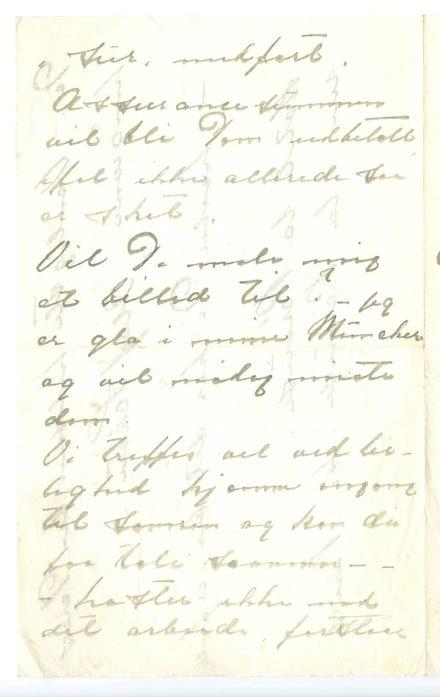 sur. medfart.
Assurancesummen
vil bli Dem udbetalt
ifal ikke allerede saa
er sket.
Vil De male mig
et billed til? – jeg
er gla i mine Müncher
og vil nødig miste
dem.
Vi træffes vel ved lei-
lighed hjemme engang
til sommeren og kan da
faa tale sammen – –
– haster ikke med
det arbeide, forstaar